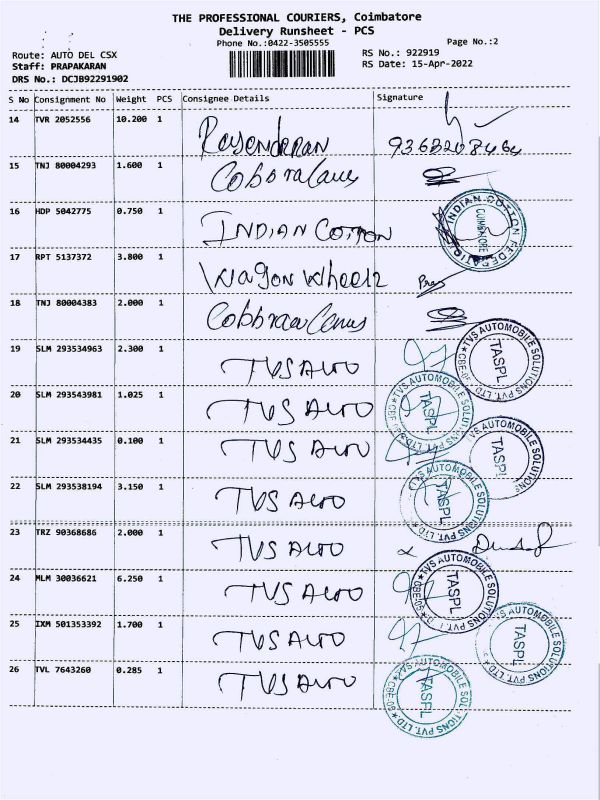 THE PROFESSIONAL COURIERS, Coimbatore
Delivery Runsheet - PCS
Phone No.:0422-3505555
Page No.:2
Route: AUTO DEL CSX
RS No.: 922919
Staff: PRAPAKARAN
RS Date: 15-Apr-2022
DRS No.: DCJB92291902
S No Consignment No Weight PCS Consignee Details Signature
14 TVR 2052556 10.200 1
15 TNJ 80004293 1.600 1
16 HDP 5042775 0.750 1 INDIAN COTTON
INDIAN COTTON FEDERATION COIMBATORE
17 RPT 5137372 3.800 1 Wagon Wheels
18 TNJ 80004383 2.000 1
19 SLM 293534963 2.300 1 TVS AUTO
TVS AUTOMOBILE SOLUTIONS PVT. LTD TASPL
20 SLM 293543981 1.025 1 TVS AUTO
TVS AUTOMOBILE SOLUTIONS PVT. LTD TASPL
21 SLM 293534435 0.100 1 TVS AUTO
TVS AUTOMOBILE SOLUTIONS TASPL
22 SLM 293538194 3.150 1 TVS AUTO
TVS AUTOMOBILE SOLUTIONS PVT. LTD TASPL
23 TRZ 90368686 2.000 1 TVS AUTO
24 MLM 30036621 6.250 1 TVS AUTO
TVS AUTOMOBILE SOLUTIONS PVT. TASPL
25 IXM 501353392 1.700 1 TVS AUTO
TVS AUTOMOBILE SOLUTIONS PVT. LTD TASPL
26 TVL 7643260 0.285 1 TVS AUTO
TVS AUTOMOBILE SOLUTIONS PVT. LTD TASPL